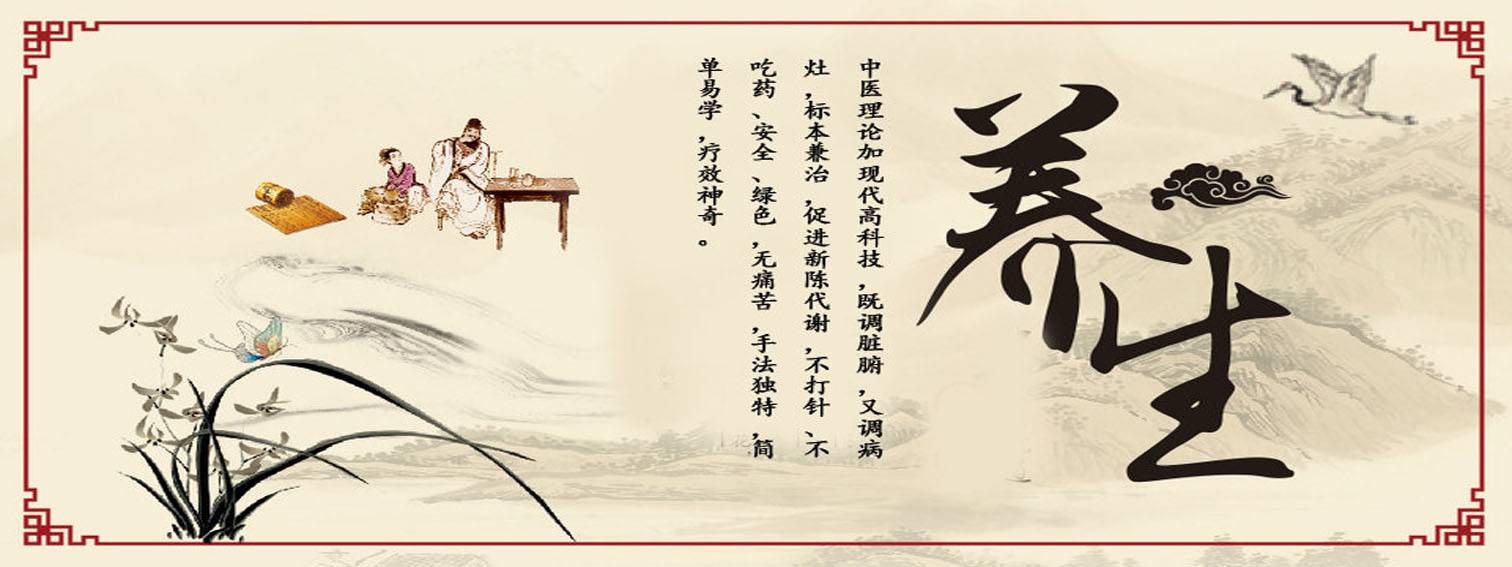 养生
中医理论加现代高科技,既调脏腑,又调病
灶,标本兼治,促进新陈代谢,不打针、不
吃药、安全、绿色,无痛苦,手法独特,简
单易学,疗效神奇。